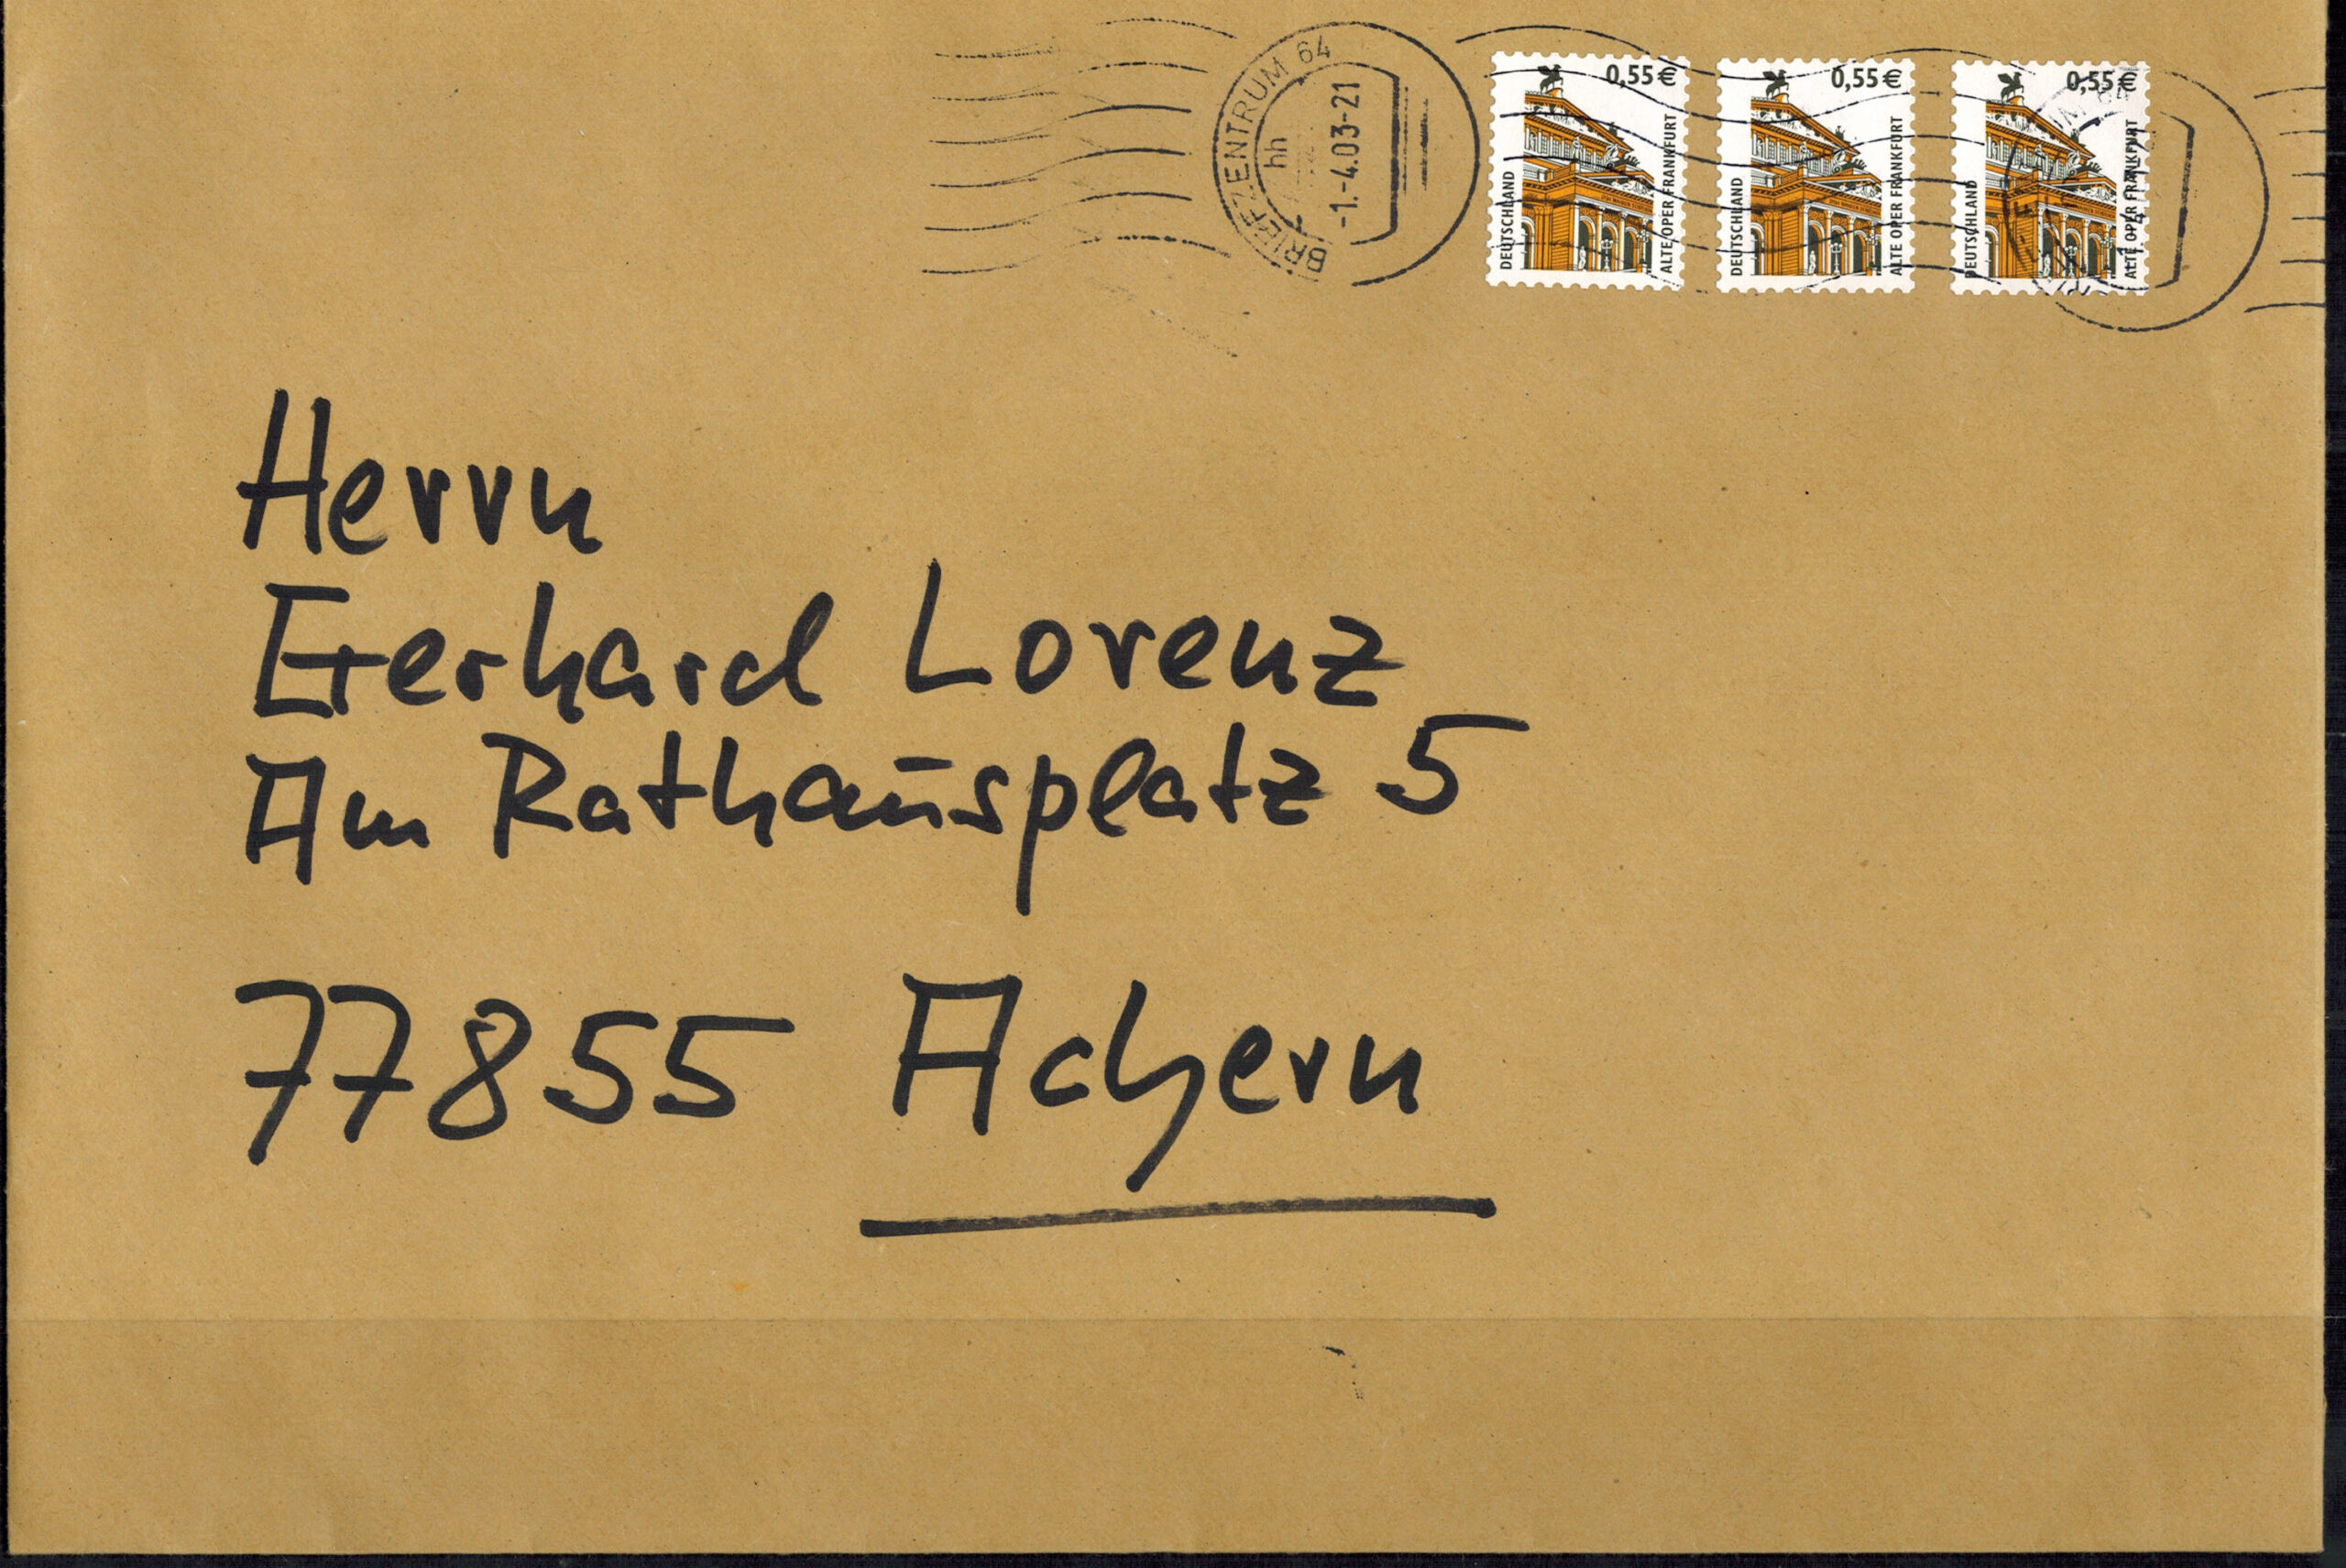 BRIEFZENTRUM 64
hh
-1.-4.03-21
0,55€
DEUTSCHLAND
ALTE OPER FRANKFURT
0,55€
DEUTSCHLAND
ALTE OPER FRANKFURT
0,55€
DEUTSCHLAND
ALTE OPER FRANKFURT
Herrn
Gerhard Lorenz
Am Rathausplatz 5
77855 Achern